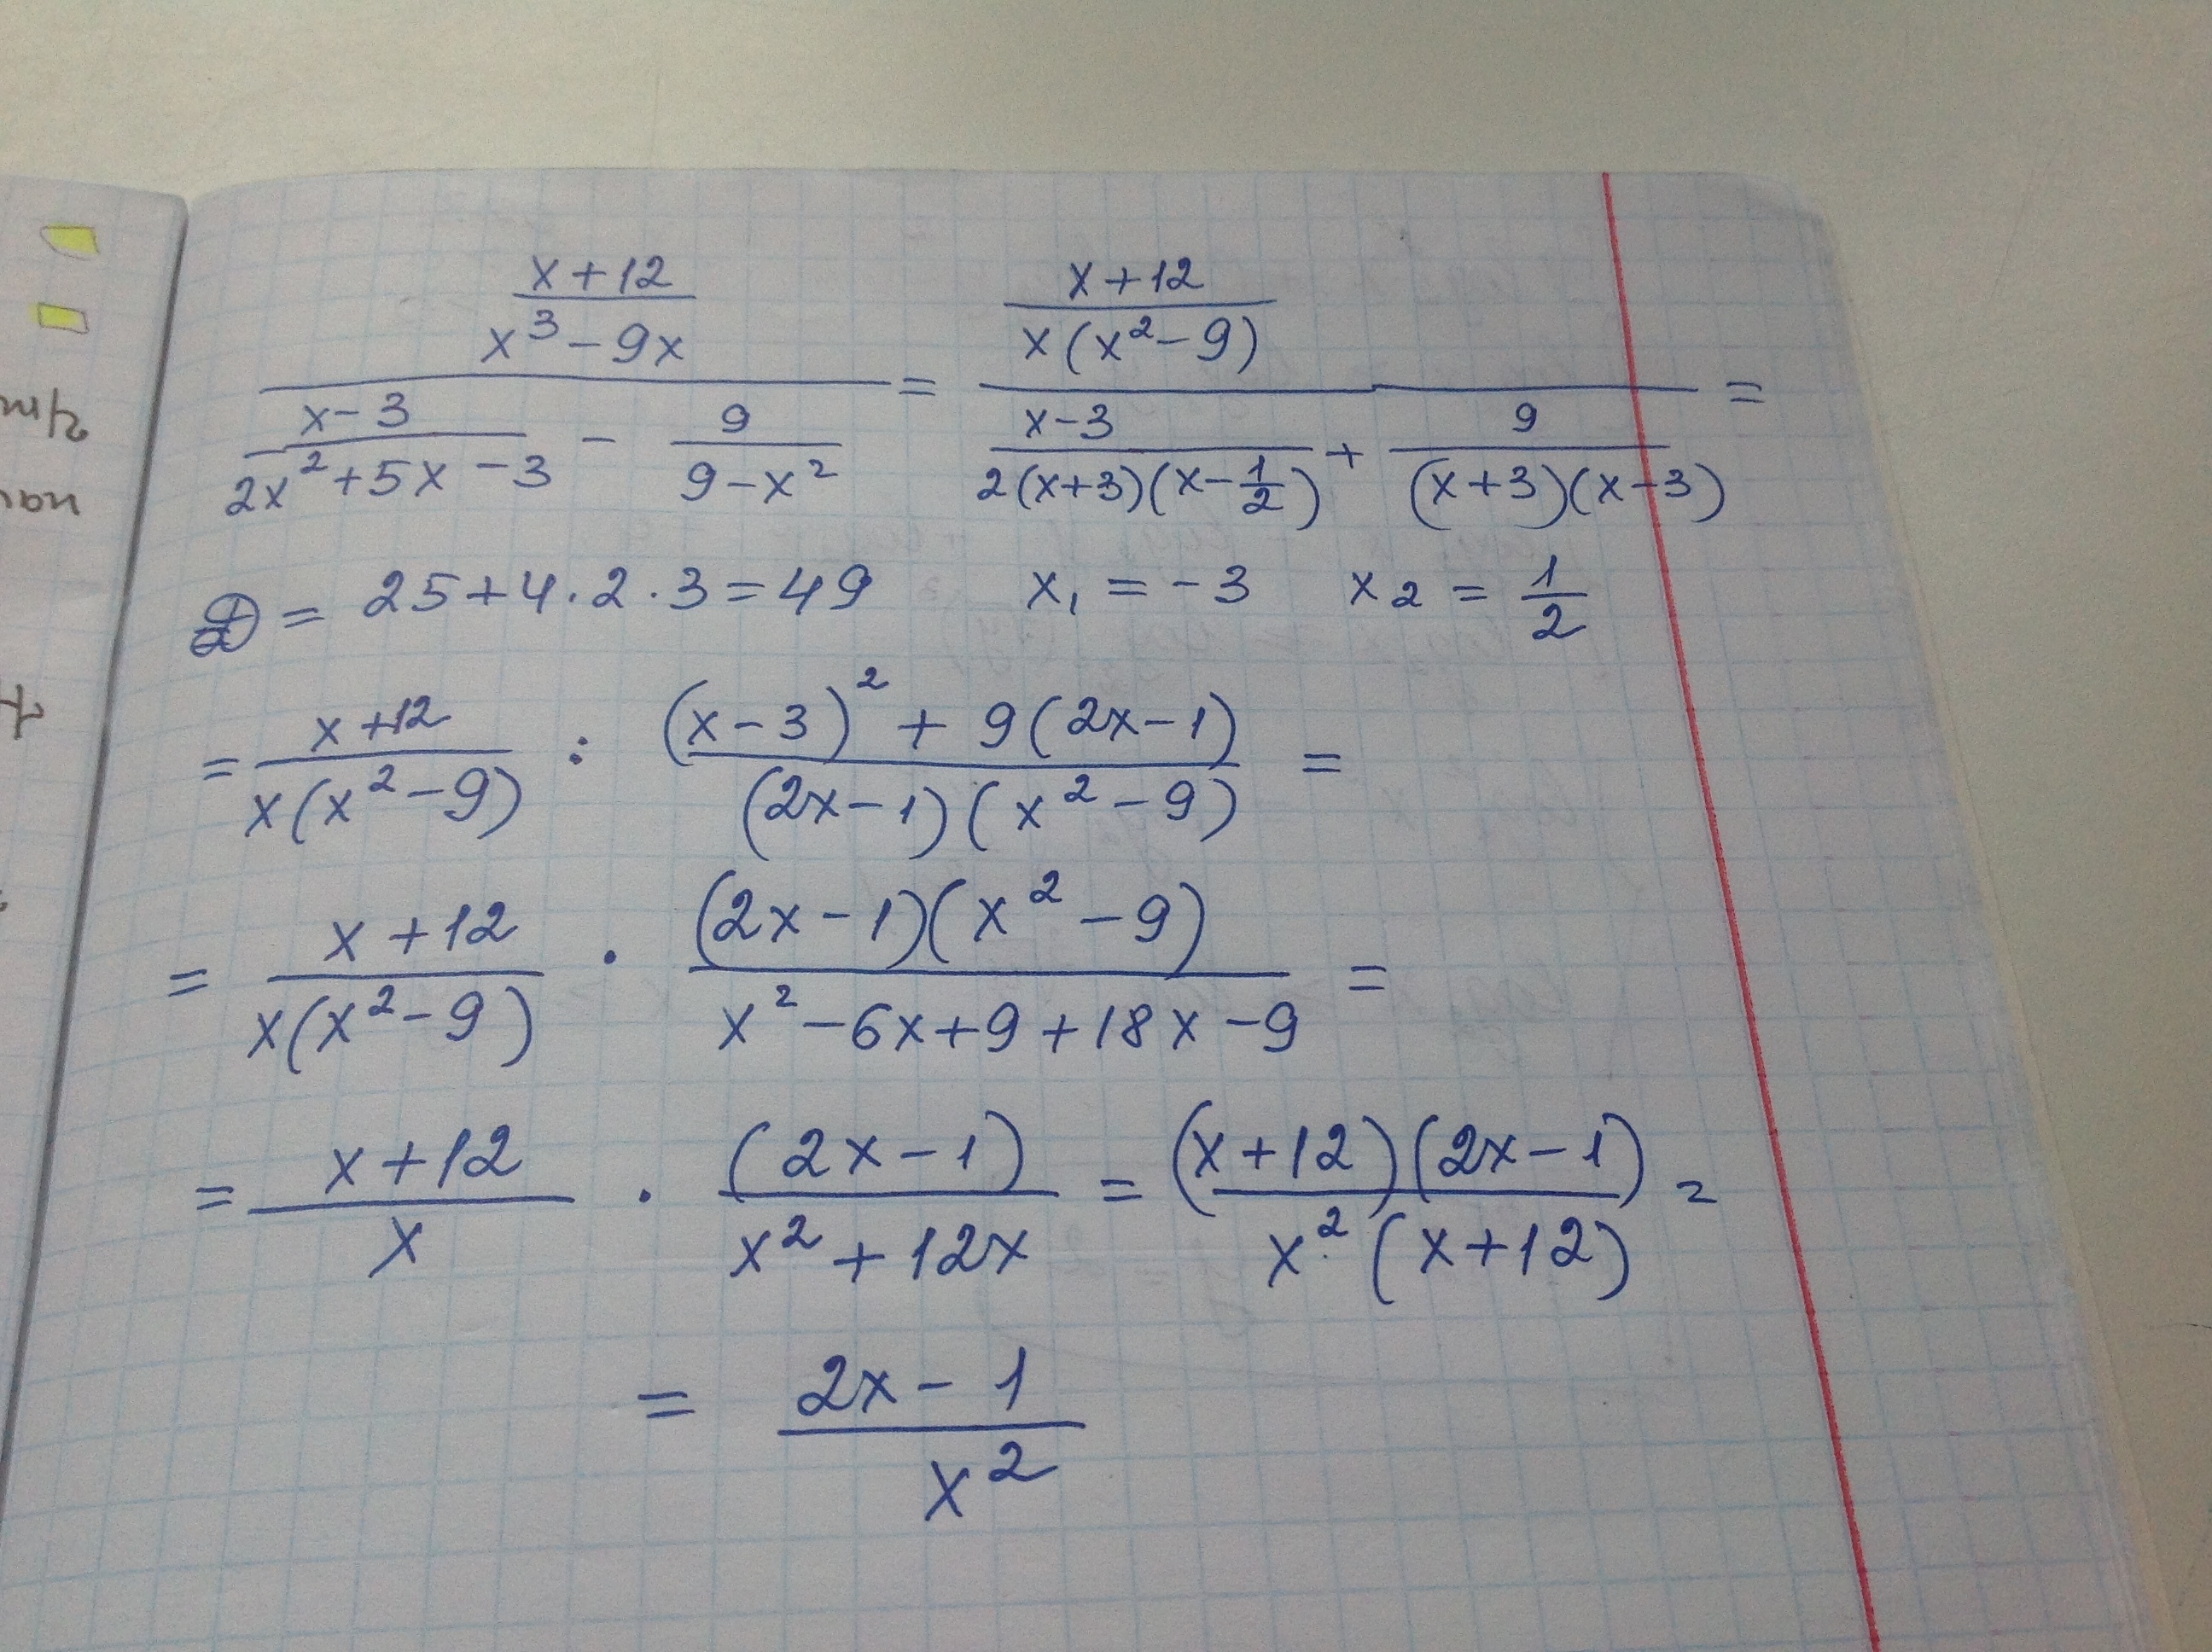 (x+12)/(x³-9x) / ((x-3)/(2x²+5x-3) - 9/(9-x²)) = (x+12)/(x(x²-9)) / ((x-3)/(2(x+3)(x-1/2)) + 9/((x+3)(x-3))) =
D = 25+4·2·3=49 x₁ = -3 x₂ = 1/2
= (x+12)/(x(x²-9)) : ((x-3)²+9(2x-1))/((2x-1)(x²-9)) =
= (x+12)/(x(x²-9)) · ((2x-1)(x²-9))/(x²-6x+9+18x-9) =
= (x+12)/x · (2x-1)/(x²+12x) = ((x+12)(2x-1))/(x²(x+12)) =
= (2x-1)/x²